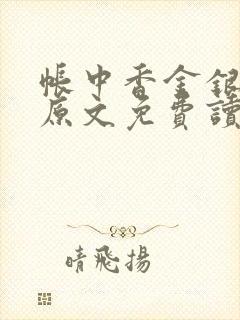 帳中香金銀
原文免費讀
晴飛揚